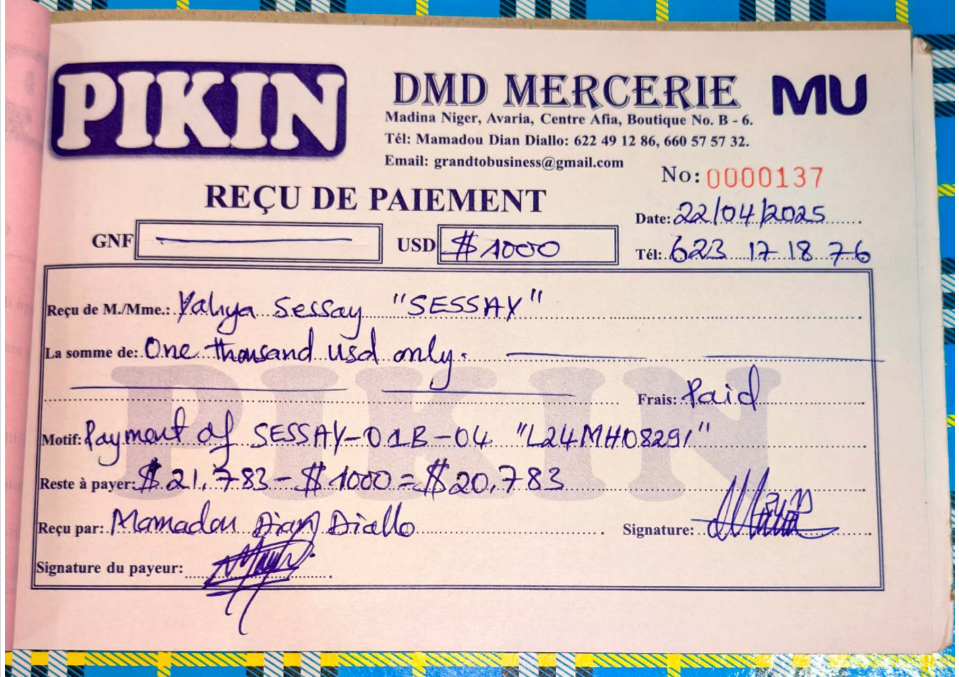 PIKIN
DMD MERCERIE MU
Madina Niger, Avaria, Centre Afia, Boutique No. B - 6.
Tél: Mamadou Dian Diallo: 622 49 12 86, 660 57 57 32.
Email: grandtobusiness@gmail.com
No: 0000137
REÇU DE PAIEMENT
Date: 22/04/2025
GNF USD $1000
Tél: 623 17 18 76
Reçu de M./Mme.: Yahya Sessay "SESSAY"
La somme de: One thousand usd only.
Frais: Paid
PIKIN
Motif: Payment of SESSAY-01B-04 "L24MH08291"
Reste à payer: $21,783 - $1000 = $20,783
Reçu par: Mamadou Dian Diallo Signature:
Signature du payeur: